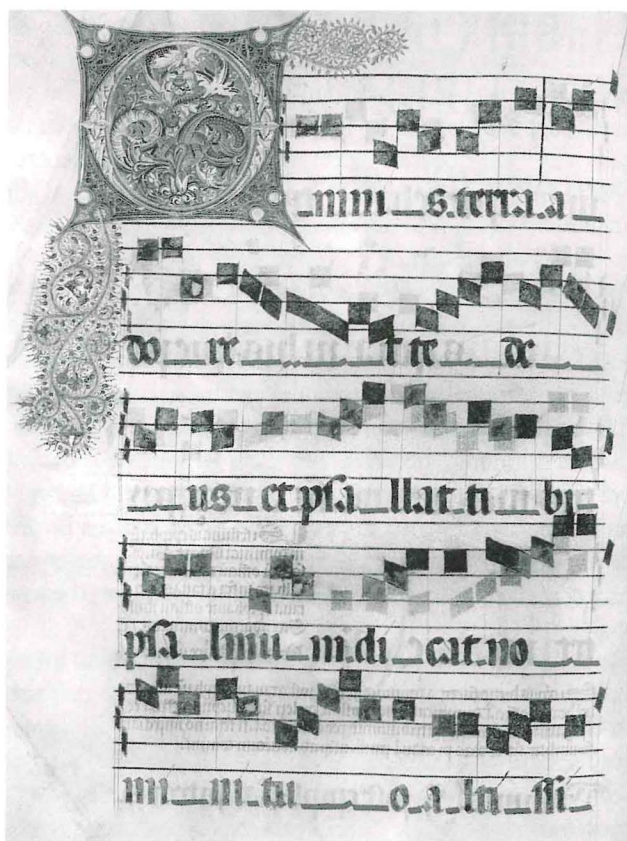 Omni__s.terra.a__
do__re____t te__de____
____us__et.psa__llat.ti__bi
psa__lmu__m.di__cat.no____
mi__ni.tu____o.a.lti__ssi__